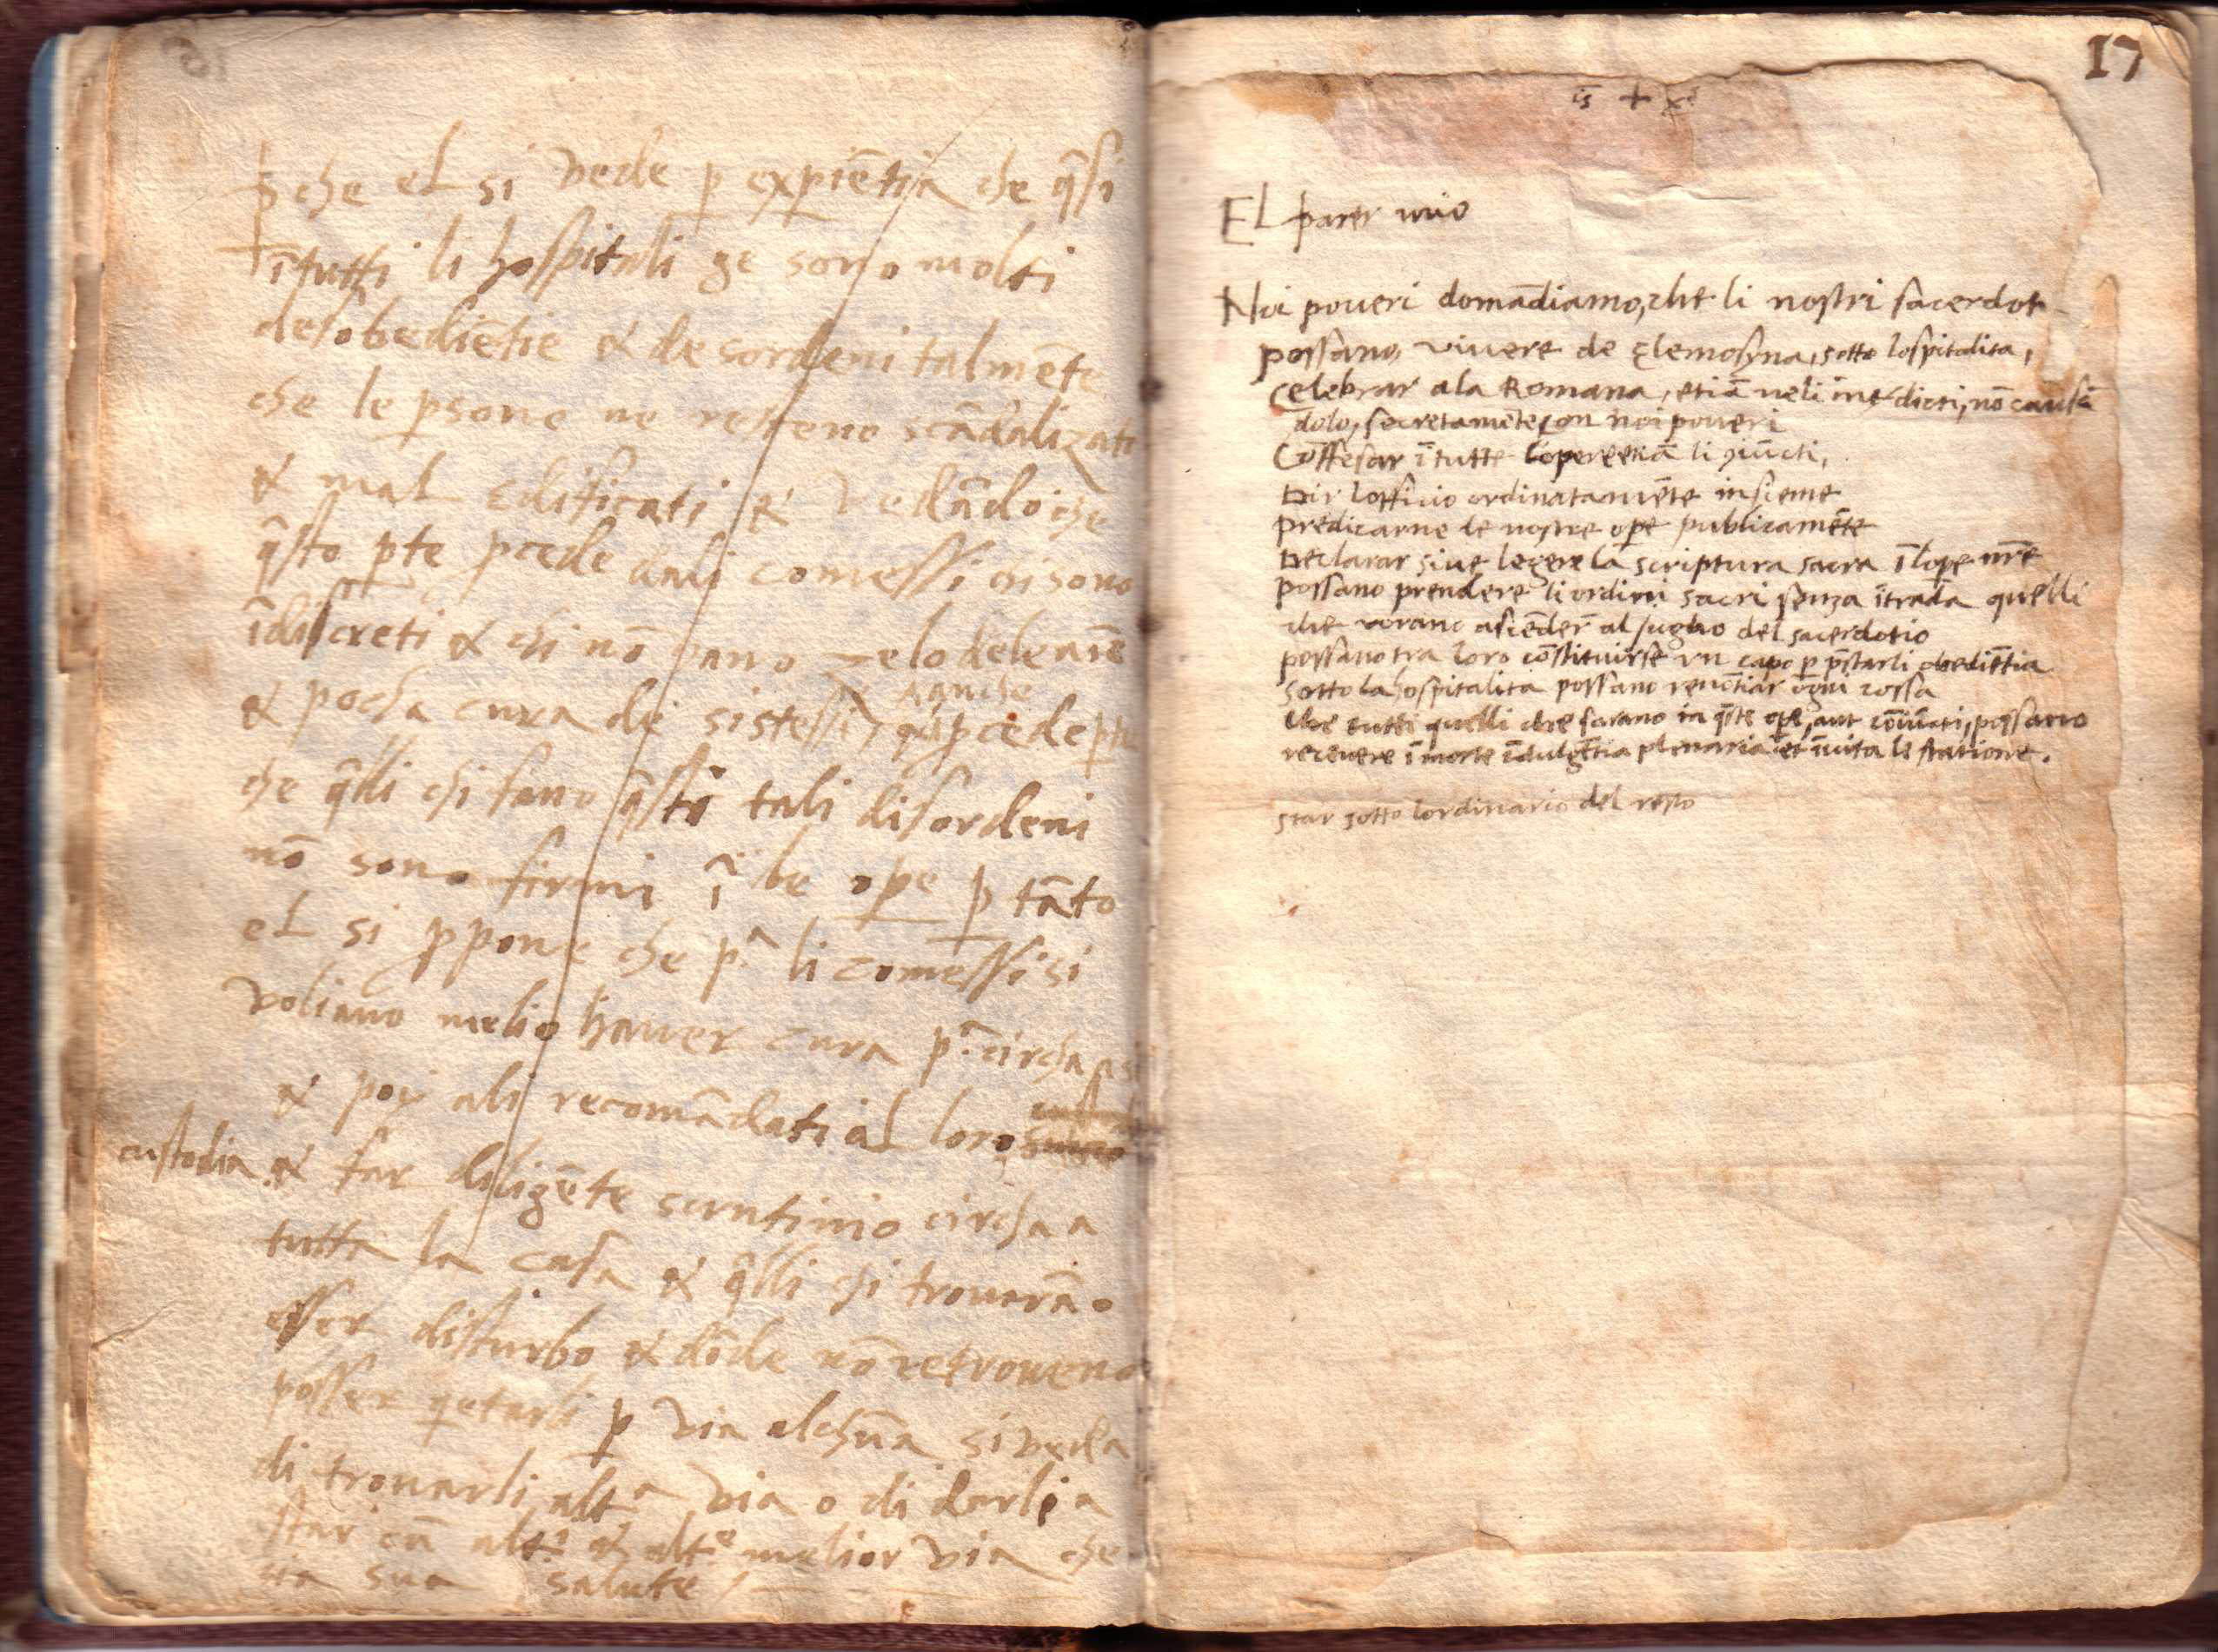 ꝑche el si vede ꝑ expiētia che q̄si
ī tutti li hospitali ge sono molti
desobediētie & desordeni talmēte
che le ꝑsone ne resteno scādalizati
& mal edificati & vedādo che
q̄sto ꝑte ꝓcede dali comessi chi sono
īdiscreti & chi nō hano zelo dele aīe
& pocha cura de si stessi anche ꝓcede ꝑte
che q̄lli chi fano q̄sti tali disordeni
nō sono firmi ī le oꝑe ꝑ tāto
el si ꝓpone che pª li comessi si
voliano melio haver cura pª circha a se
& poy ali recomādati al loro
custodia & far diligēte scrutinio circha a
tutta la casa & q̄lli chi trovarāo
esser disturbo & dōde nō retroveno
posser qetarli ꝑ via alchūa si veda
di trovarli altª via o di darli a
star cū altⁱ & altᵉ melior via che
sia sua salute
17
īs + xˢ
El parer mio
Noi poveri domādiamo, che li nostri sacerdot
possano, vivere de elemosyna, sotto lospitalita,
celebrar ala Romana, etiā neli interdicti, nō causā
dolo, secretamēte con noi poveri
Cōffesar ī tutte lopere etiā li giūcti,
Dir lofficio ordinatamēte insieme
predicarne le nostre oꝑe publicamēte
Declarar sive legere la scriptura sacra ī loꝑe nr̄e
possano prendere li ordini sacri senza ītrada quelli
che vorano ascēder al suglio del sacerdotio
possano tra loro cōstituirse un capo ꝑ p̄starli obediētia
sotto la hospitalita possano renūtiar ogni cossa
Che tutti quelli che sarano in q̄ste oꝑe, aut cōiūcti, possano
recevere ī morte īdulgētia plenaria et ī vita le statione.
star sotto lordinario del resto